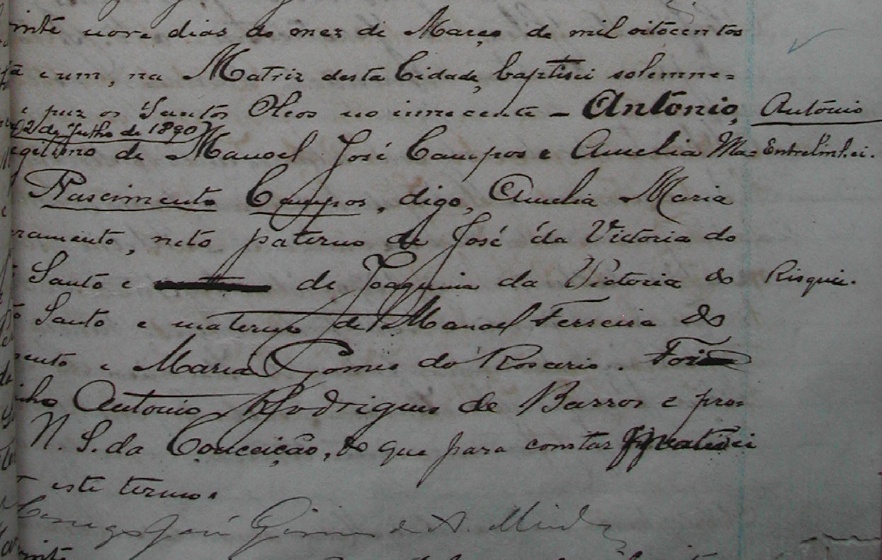 inte nove dias do mez de Março de mil oitocentos
ta e um, na Matriz desta Cidade, baptisei solemne=
e puz os Santos Oleos no innocente – Antonio, Antonio
(2 de Julho de 1890)
legitimo de Manoel José Campos e Amelia Ma= Entrelinhei.
Nascimento Campos, digo, Amelia Maria
ramento, neto paterno de José da Victoria do
Santo e de Joaquina da Victoria do Risquei.
Santo e materno de Manoel Ferreira do
ento e Maria Gomes do Rosario. Foi
inho Antonio Rodrigues de Barros e pro=
N. S. da Conceição, do que para constar
este termo.
Conego José